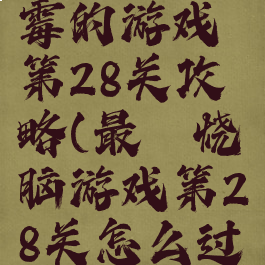 霉的游戏
第28关攻
略(最 烧
脑游戏第2
8关怎么过